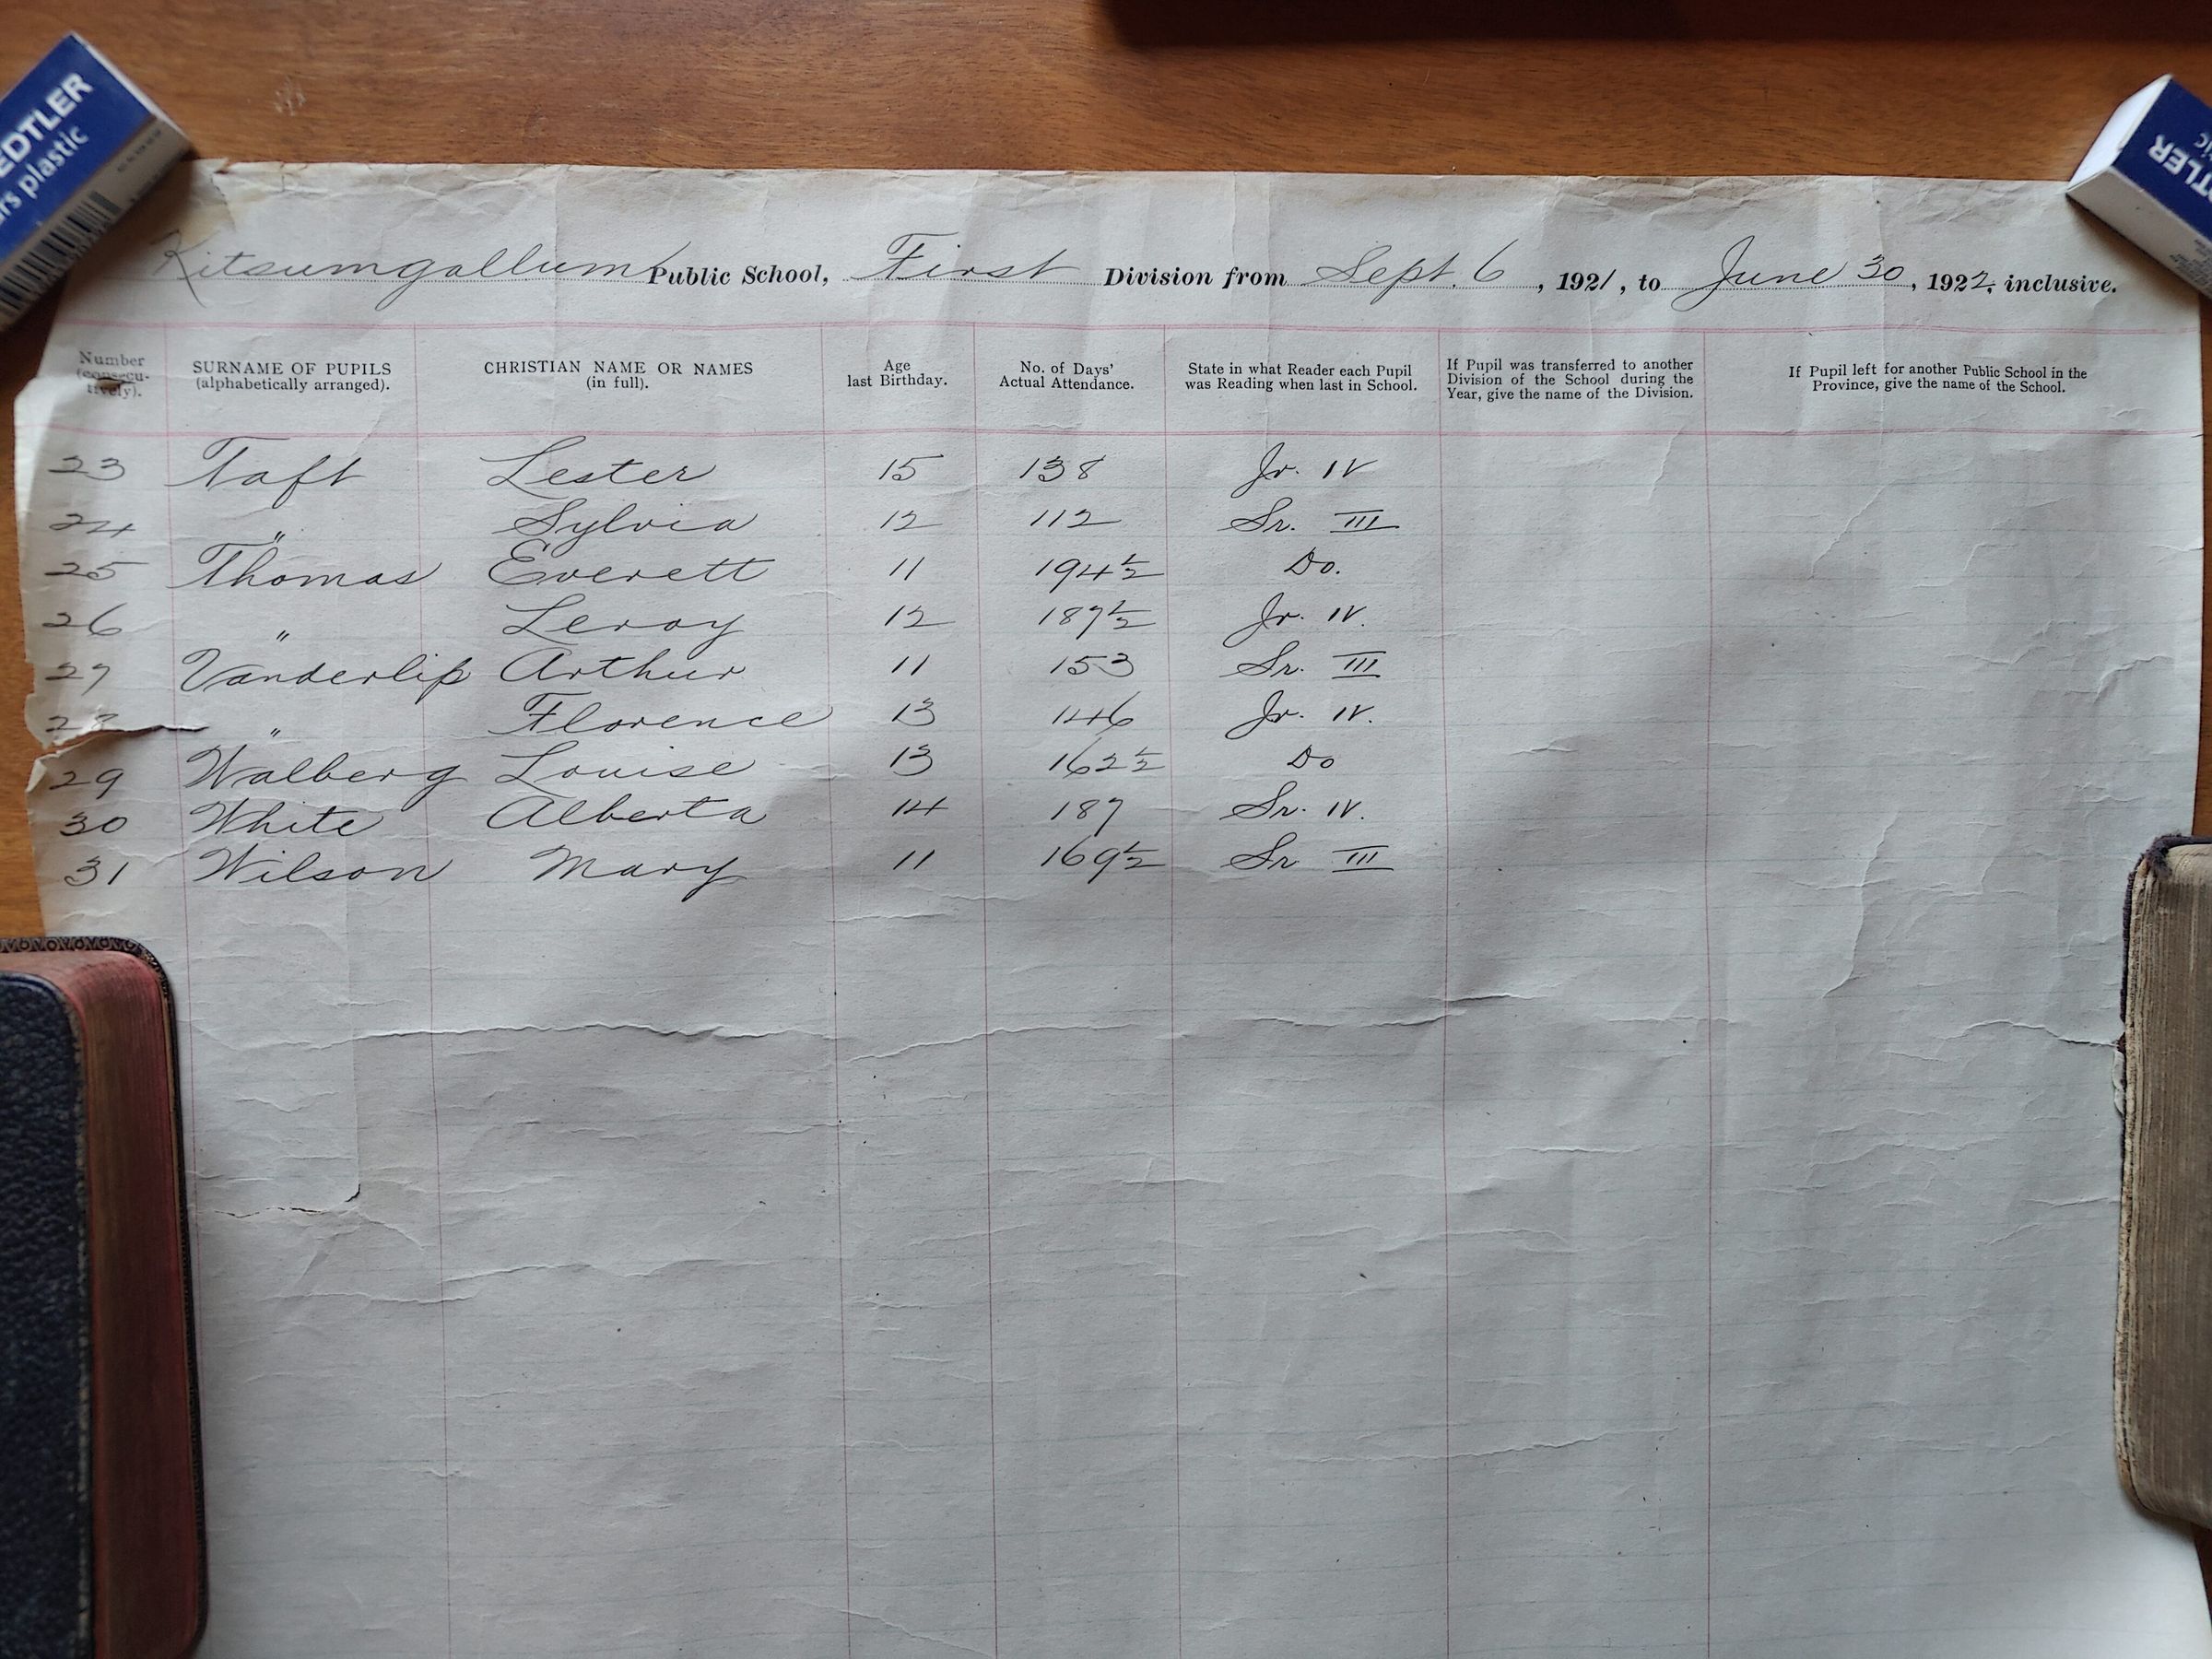 EDTLER
rs plastic
TLER
ic
Kitsumgallum Public School, First Division from Sept. 6, 1921, to June 30, 1922, inclusive.
Number (consecu-tively). SURNAME OF PUPILS (alphabetically arranged). CHRISTIAN NAME OR NAMES (in full). Age last Birthday. No. of Days' Actual Attendance. State in what Reader each Pupil was Reading when last in School. If Pupil was transferred to another Division of the School during the Year, give the name of the Division. If Pupil left for another Public School in the Province, give the name of the School.
23 Taft Lester 15 138 Jr. IV
24 " Sylvia 12 112 Sr. III
25 Thomas Everett 11 194½ Do.
26 " Leroy 12 187½ Jr. IV.
27 Vanderlip Arthur 11 153 Sr. III
28 " Florence 13 146 Jr. IV.
29 Walberg Louise 13 162½ Do
30 White Alberta 14 187 Sr. IV.
31 Wilson Mary 11 169½ Sr III